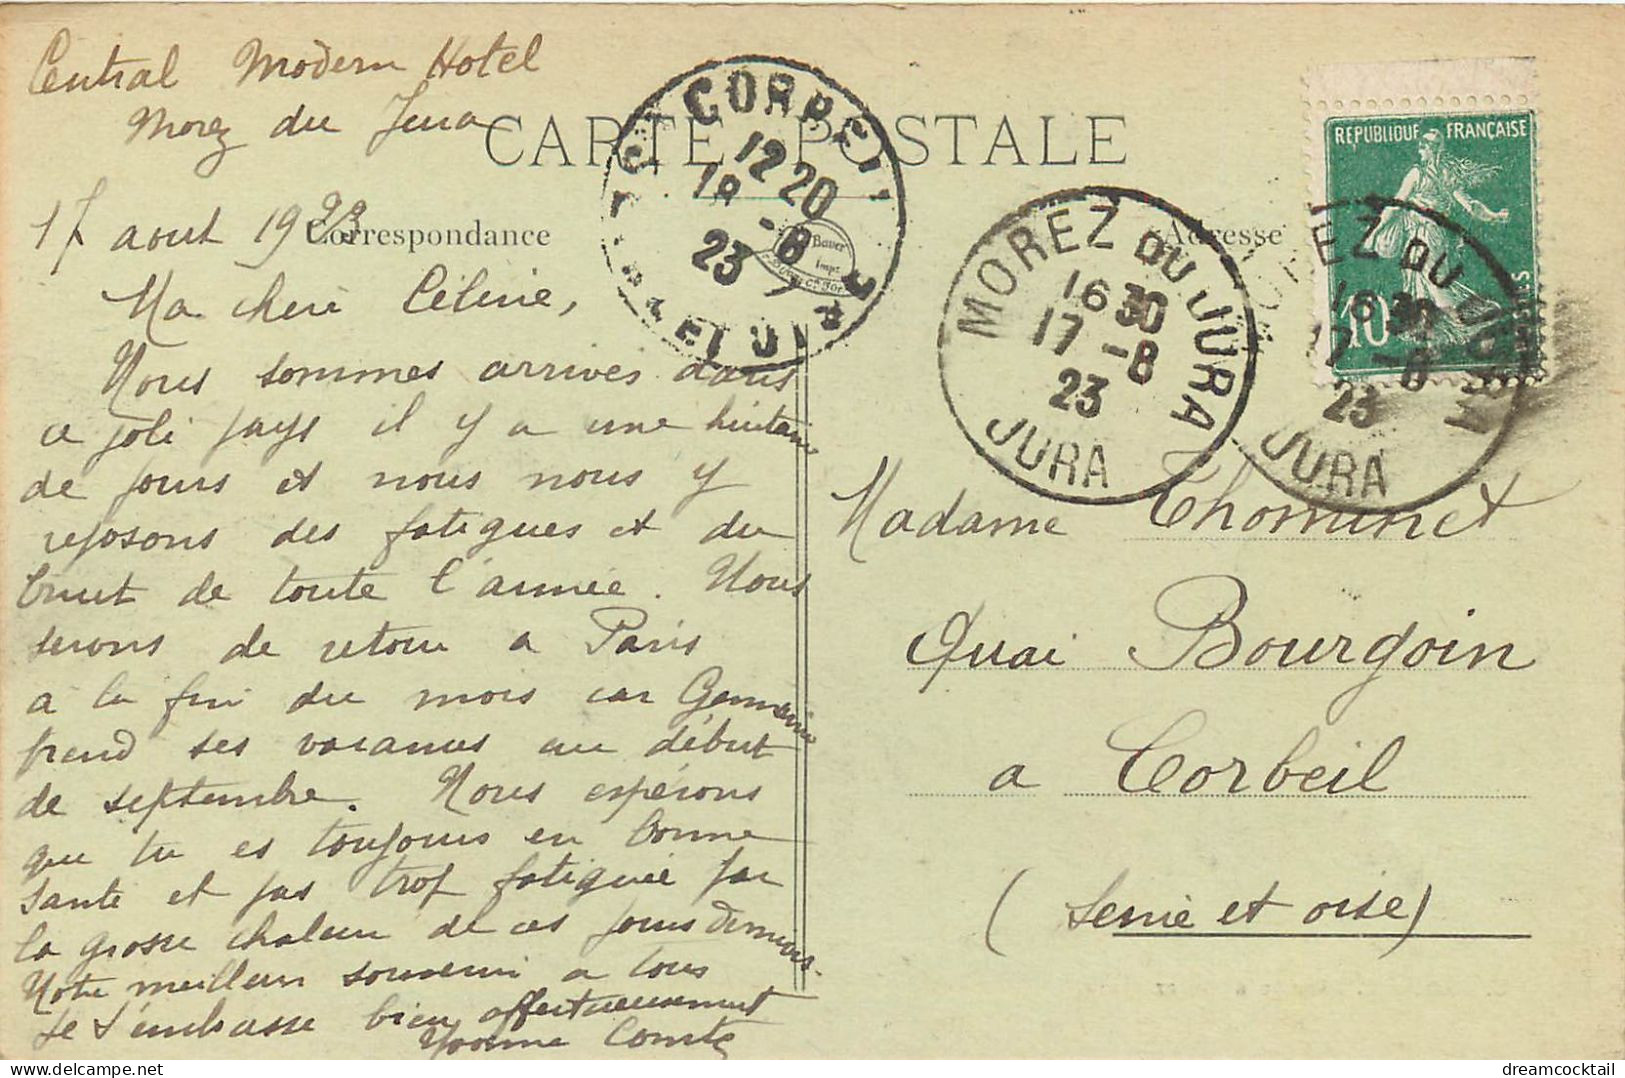 Central Modern Hotel
Morez du Jura
CARTE POSTALE
17 aout 1923
Correspondance
Adresse
CORBEIL
12 20
18 -8
23
Bauer
MOREZ DU JURA
16 30
17 -8
23
JURA
REPUBLIQUE FRANÇAISE
10
MOREZ DU JURA
16 30
17 -8
23
JURA
Ma chere Céline,
Nous sommes arrivés dans
ce joli pays il y a une huitaine
de jours et nous nous y
reposons des fatigues et du
bruit de toute l'année. Nous
serons de retour a Paris
a la fin du mois car Germaine
prend ses vacances au début
de septembre. Nous espérons
que tu es toujours en bonne
sante et pas trop fatiguée par
la grosse chaleur de ces jours derniers.
Notre meilleur souvenir a tous
Je t'embrasse bien affectueusement
Yvonne Comte
Madame Thominet
Quai Bourgoin
a Corbeil
(Seine et oise)
dreamcocktail